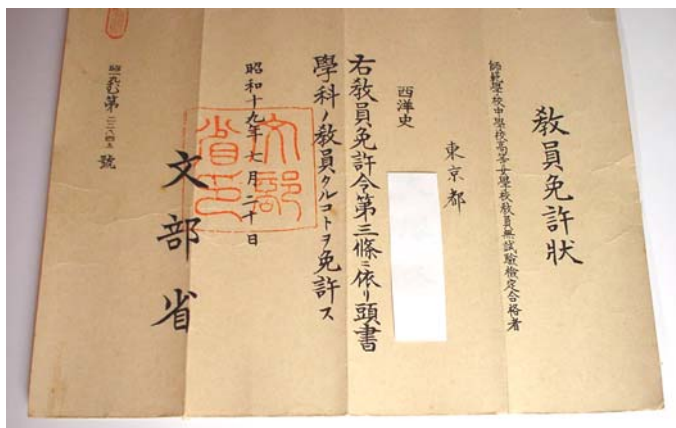 教員免許状
師範學校中學校高等女學校教員無試験檢定合格者
東京都
西洋史
右教員免許令第三條ニ依リ頭書
學科ノ教員タルコトヲ免許ス
昭和十九年七月二十日
文部省印
文部省
第
號